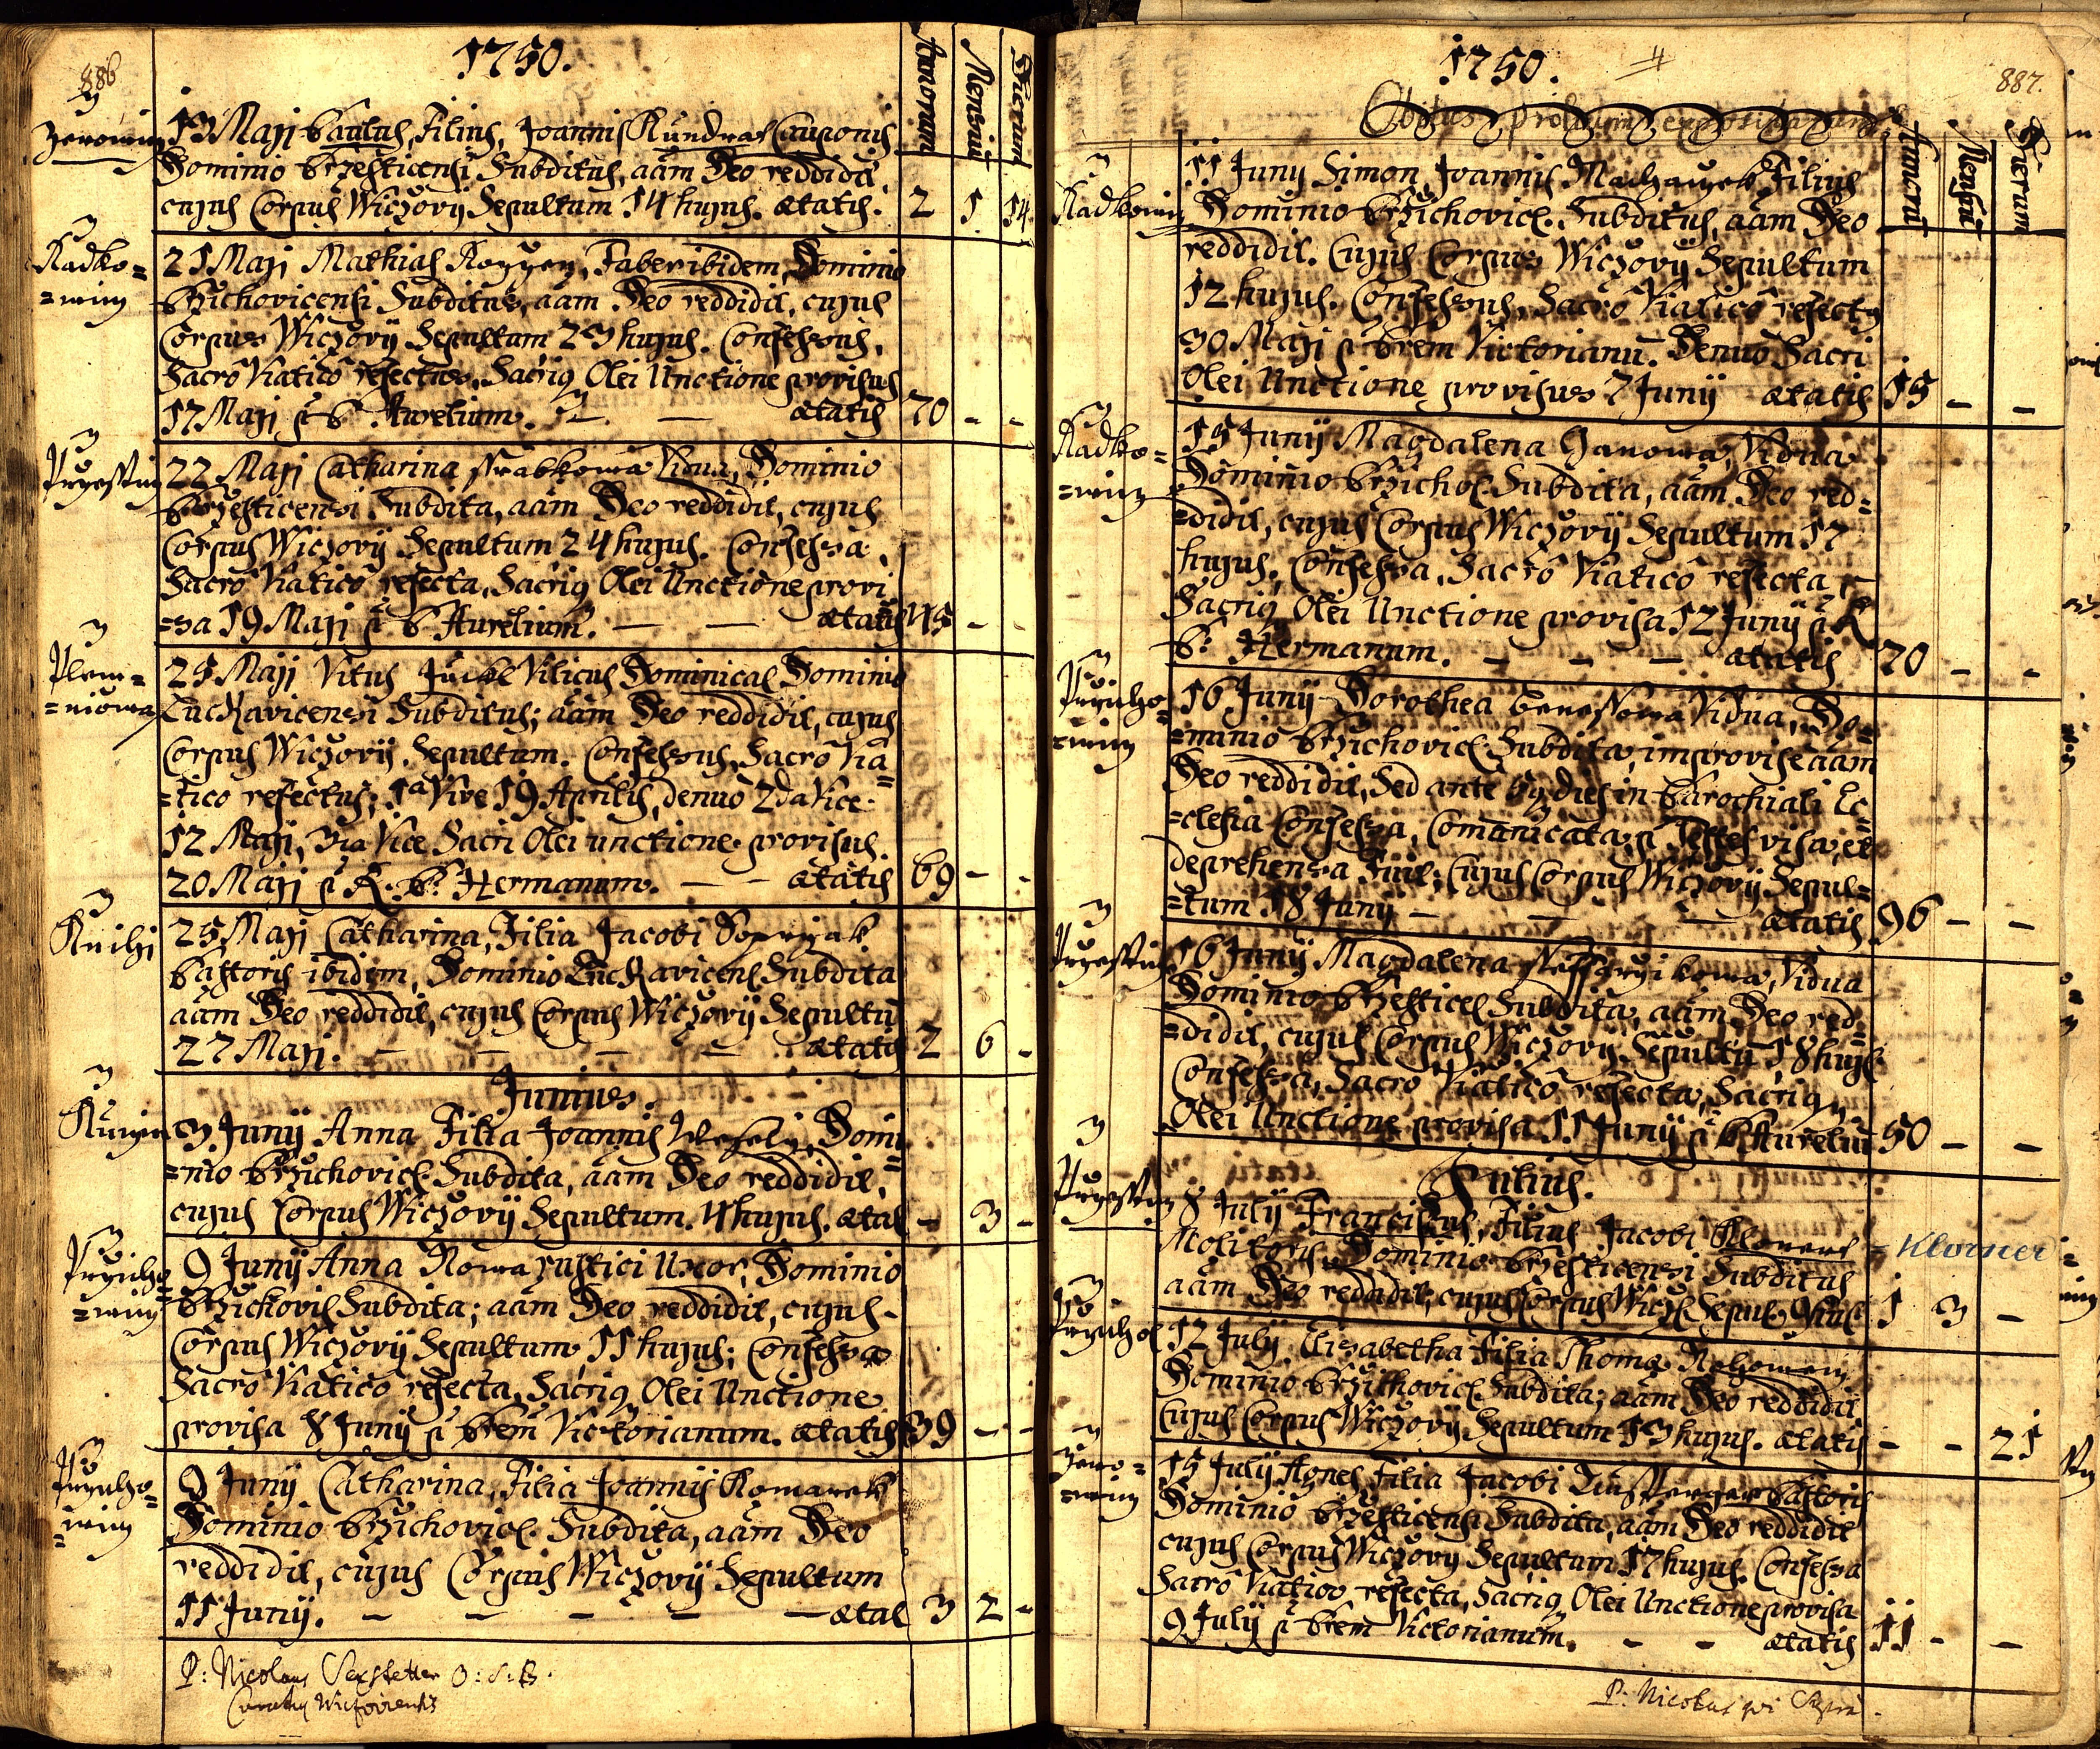 886
1750.
Annorum
Mensiũ
Dierum
Zerowiny
13 Maji Paulus, Filius, Joannis Kundrat Cauponis
Dominio Brzesticensi Subditus, aãm Deo reddidit,
cujus Corpus Wiczovij Sepultum 14 hujus. ætatis. 2 1 14
Radko=
=winy
21 Maji Mathias, Faber ibidem, Dominio
Brzichovicensi Subditus, aãm Deo reddidit, cujus
Corpus Wiczovij Sepultum 23 hujus. Confessus,
Sacrô Viaticô refectus, Sacriq Olei Unctione provisus
17 Maji p̃ P. Aurelium. — — ætatis 70 - -
Przestiz
22 Maji Catharina Vidua, Dominio
Brzesticensi Subdita, aãm Deo reddidit, cujus
Corpus Wiczovij Sepultum 24 hujus. Confessa,
Sacrô Viaticô refecta, Sacriq Olei Unctione provi
=sa 19 Maji p̃ P. Aurelium. — — ætatis 45 - -
Plew=
=niowa
25 Maji Vitus Vilicus Dominical Dominio
Luckavicensi Subditus; aãm Deo reddidit, cujus
Corpus Wiczovij Sepultum. Confessus, Sacrô Via=
=tico refectus; 1ª Vice 19 Aprilis, denuò 2da Vice
12 Maji, 3tia Vice Sacri Olei unctione provisus
20 Maji p̃ R. P. Hermanum. — — ætatis 69 - -
25 Maji Catharina, Filia Jacobi
Pastoris ibidem, Dominio Luckavicens Subdita
aãm Deo reddidit, cujus Corpus Wiczovij Sepultũ
27 Maji. — — — — ætatis 2 6 -
Junius.
3 Junij Anna Filia Joannis Wesely, Domi
=nio Brzichovic. Subdita, aãm Deo reddidit,
cujus Corpus Wiczovij Sepultum. 4 hujus. ætat - 3 -
Przicho
=winy
9 Junij Anna Nowa rustici Uxor, Dominio
Brzichovic Subdita; aãm Deo reddidit, cujus
Corpus Wiczovij Sepultum, 11 hujus; Confessa
Sacrô Viaticô refecta, Sacriq Olei Unctione
provisa 8 Junij p̃ Prem Victorianum. ætatis 39 - -
Przicho=
=winy
9 Junij Catharina, Filia Joannis Komarek
Dominio Brzichovic. Subdita, aãm Deo
reddidit, cujus Corpus Wiczovij Sepultum
11 Junij. — — — — — ætat 3 2 -
P: Nicolaus O:S:B.
Curatus
1750.
4
887.
Obitus
Annorũ
Mensiũ
Dierum
Radkowiny
11 Juny Simon Joannis Filius
Dominio Brzichovic. Subditus, aãm Deo
reddidit. Cujus Corpus Wiczovij Sepultum
12 hujus. Confessus, Sacrô Viaticô refectg
30 Maji p̃ Prem Victorianũ. Denuò Sacri
Olei Unctione provisus 7 Junij ætatis 15 - -
Radko=
=winy
15 Junij Magdalena Hanowa, Vidua
Dominio Brzichoc Subdita, aãm Deo red=
=didit, cujus Corpus Wiczovij Sepultum 17
hujus. Confessa, Sacrô Viaticô refecta,
Sacriq Olei Unctione provisa 12 Junij p̃ R
P: Hermanum. — — — ætatis 70 - -
Przicho=
=winy
16 Junij Dorothea Benessowa Vidua, Do=
=minio Brzichovic Subdita, improvise aãm
Deo reddidit, Sed ante dies in Parochiali Ec=
=clesia Confessa, Comunicata, p̃ Testes visa, et
deprehensa Fuit; Cujus Corpus Wiczovij Sepul=
=tum 18 Junij — — — ætatis 96 - -
Przestiz
16 Junij Magdalena Vidua
Dominio Brzesticel Subdita, aãm Deo red=
=didit, cujus Corpus Wiczovij Sepultũ 18 hujus
Confessa, Sacrô Viaticô refecta, Sacriq,
Olei Unctione provisa 11 Junij p̃ P. Aureliũ 50 - -
Julius.
Przestiz
8 Julij Franciscus, Filius Jacobi = Klorner
Molitoris Dominio Brzesticensi Subditus
aãm Deo reddidit, cujus Corpus Wicz. Sepult. 9 huis 1 3 -
Przichoc
12 Julij Elisabetha Filia Thomæ
Dominio Brzichovic Subdita; aãm Deo reddidit
Cujus Corpus Wiczovij Sepultum 13 hujus. ætatis - - 21
Zero=
=winy
15 Julij Agnes Filia Jacobi Pastoris
Dominio Brzesticensi Subdita, aãm Deo reddidit
cujus Corpus Wiczovij Sepultum 17 hujus. Confessa
Sacrô Viaticô refecta, Sacriq Olei Unctione provisa
9 Julij p̃ Prem Victorianum. - - ætatis 11 - -
P: Nicolaus qui Supra.